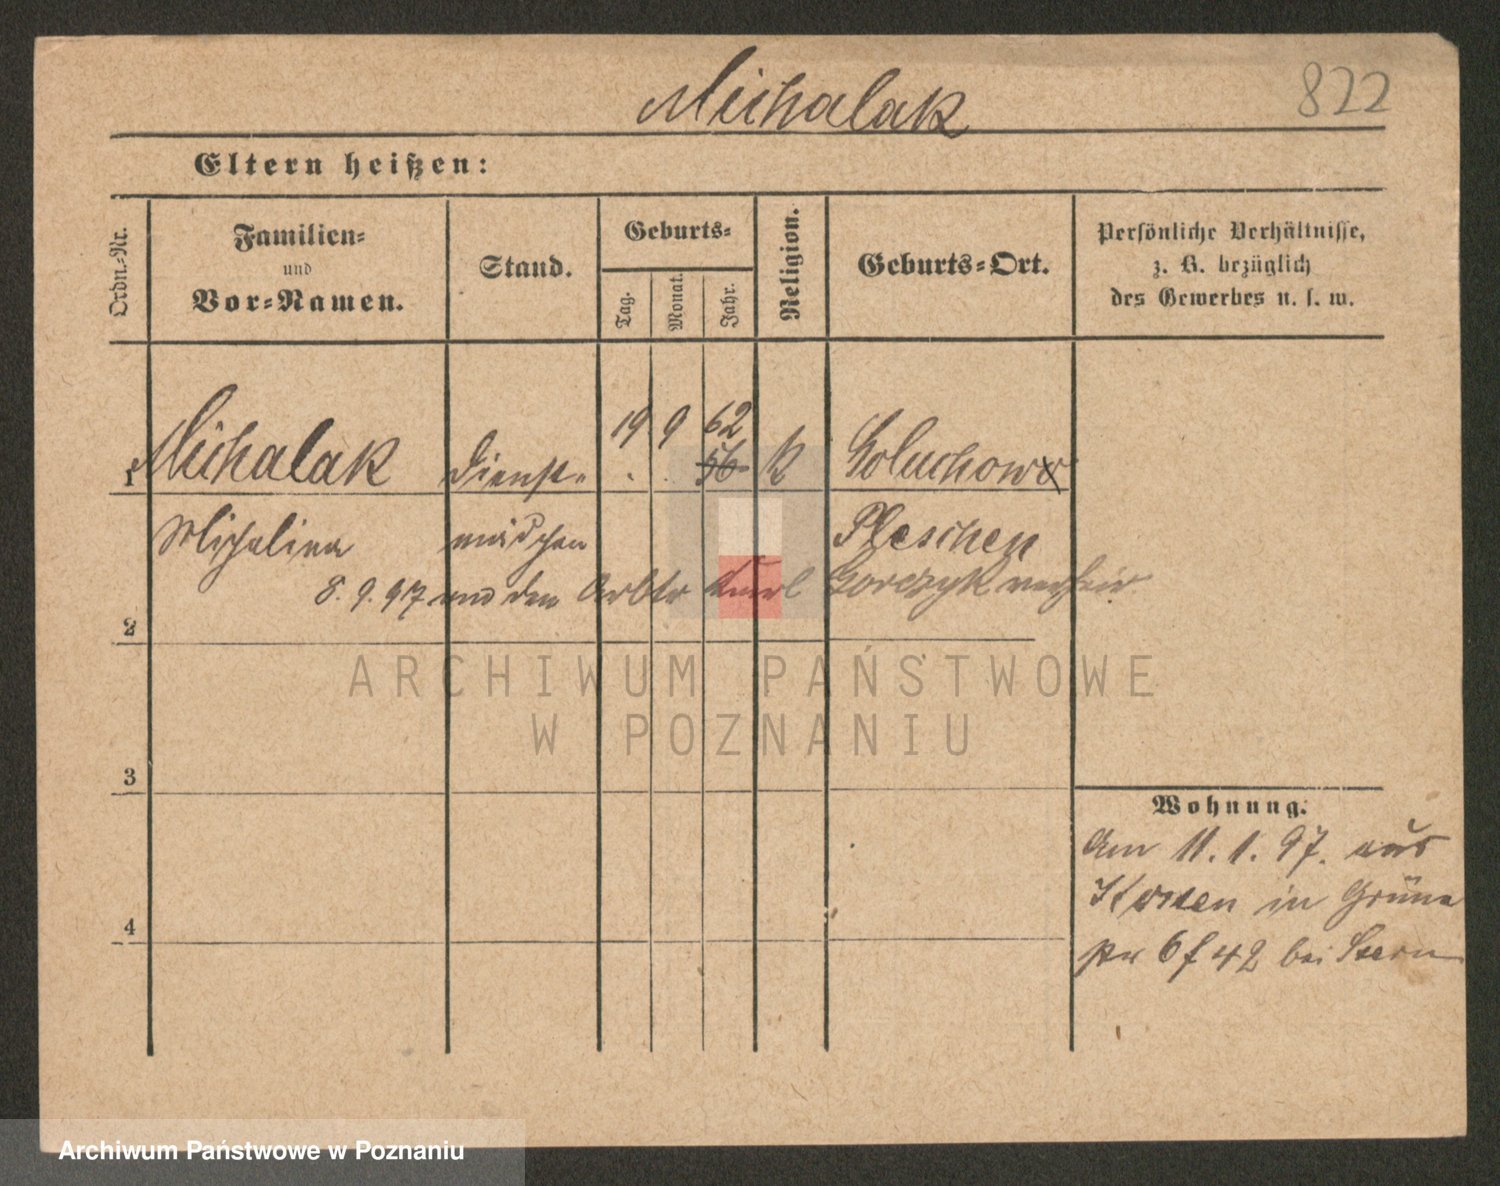 Michalak
822
Eltern heißen:
Ordn.-Nr.
Familien-
und
Vor-Namen.
Stand.
Geburts-
Tag.
Monat.
Jahr.
Religion.
Geburts-Ort.
Persönliche Verhältnisse,
z. B. bezüglich
des Gewerbes u. s. w.
1 Michalak Dienst- 19 9 62 56 k Goluchow
Michalina mädchen Pleschen
8.9.97 und den Arbtr Gorczyk verheir
2
3
4
Wohnung.
Am 11.1.97. aus
in Grüne
6 f 42 bei Stern
ARCHIWUM PAŃSTWOWE
W POZNANIU
Archiwum Państwowe w Poznaniu